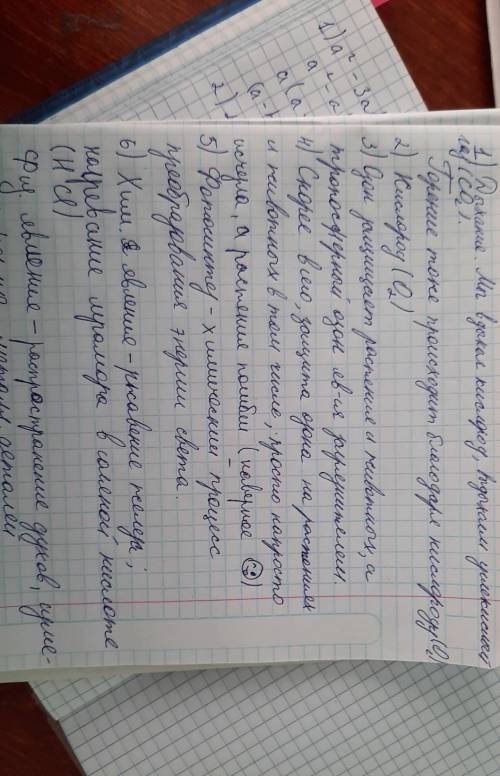 1) Дыхание. Мы вдыхая кислород, выдыхаем углекислый
газ (CO₂).
Горение тоже происходит благодаря кислороду (O₂)
2) Кислород (O₂)
3) Озон защищает растения и животных, а
тропосферный озон яв-ся загрязнителем.
4) Скорее всего, защита озона на растениях
и животных в том числе, просто напросто
исчезла, а растения погибли (наверное ☺)
5) Фотосинтез - химический процесс
преобразования энергии света.
6) Хим. явление - ржавение железа;
нагревание мрамора в соляной кислоте
(HCl)
Физ. явление - распространение духов,
деталей
1) a² - 3a
a
a(a
(a -
2)